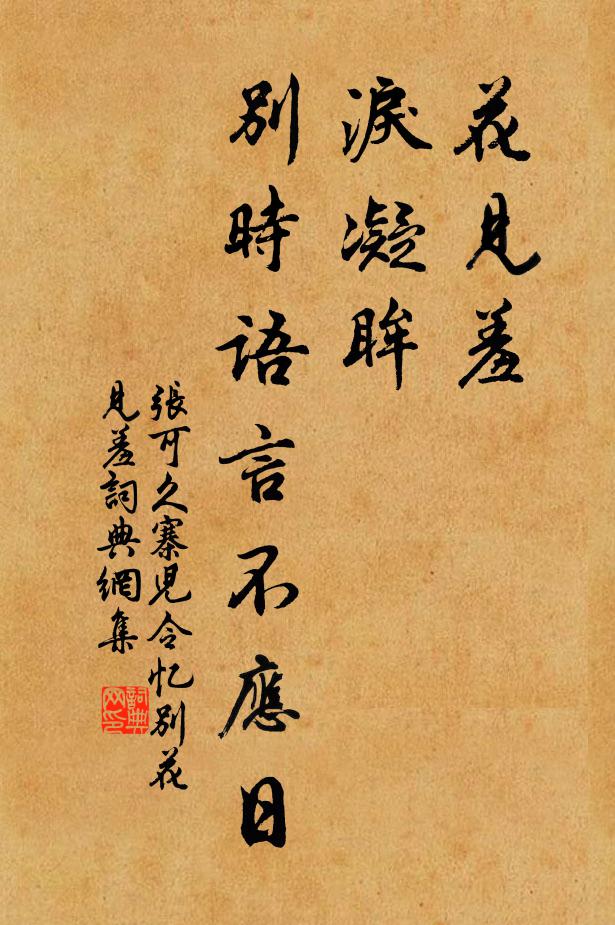 花見羞
淚凝眸
別時語言不應日
張可久寨児令忆別花
見羞詞典網集
詞典
网印